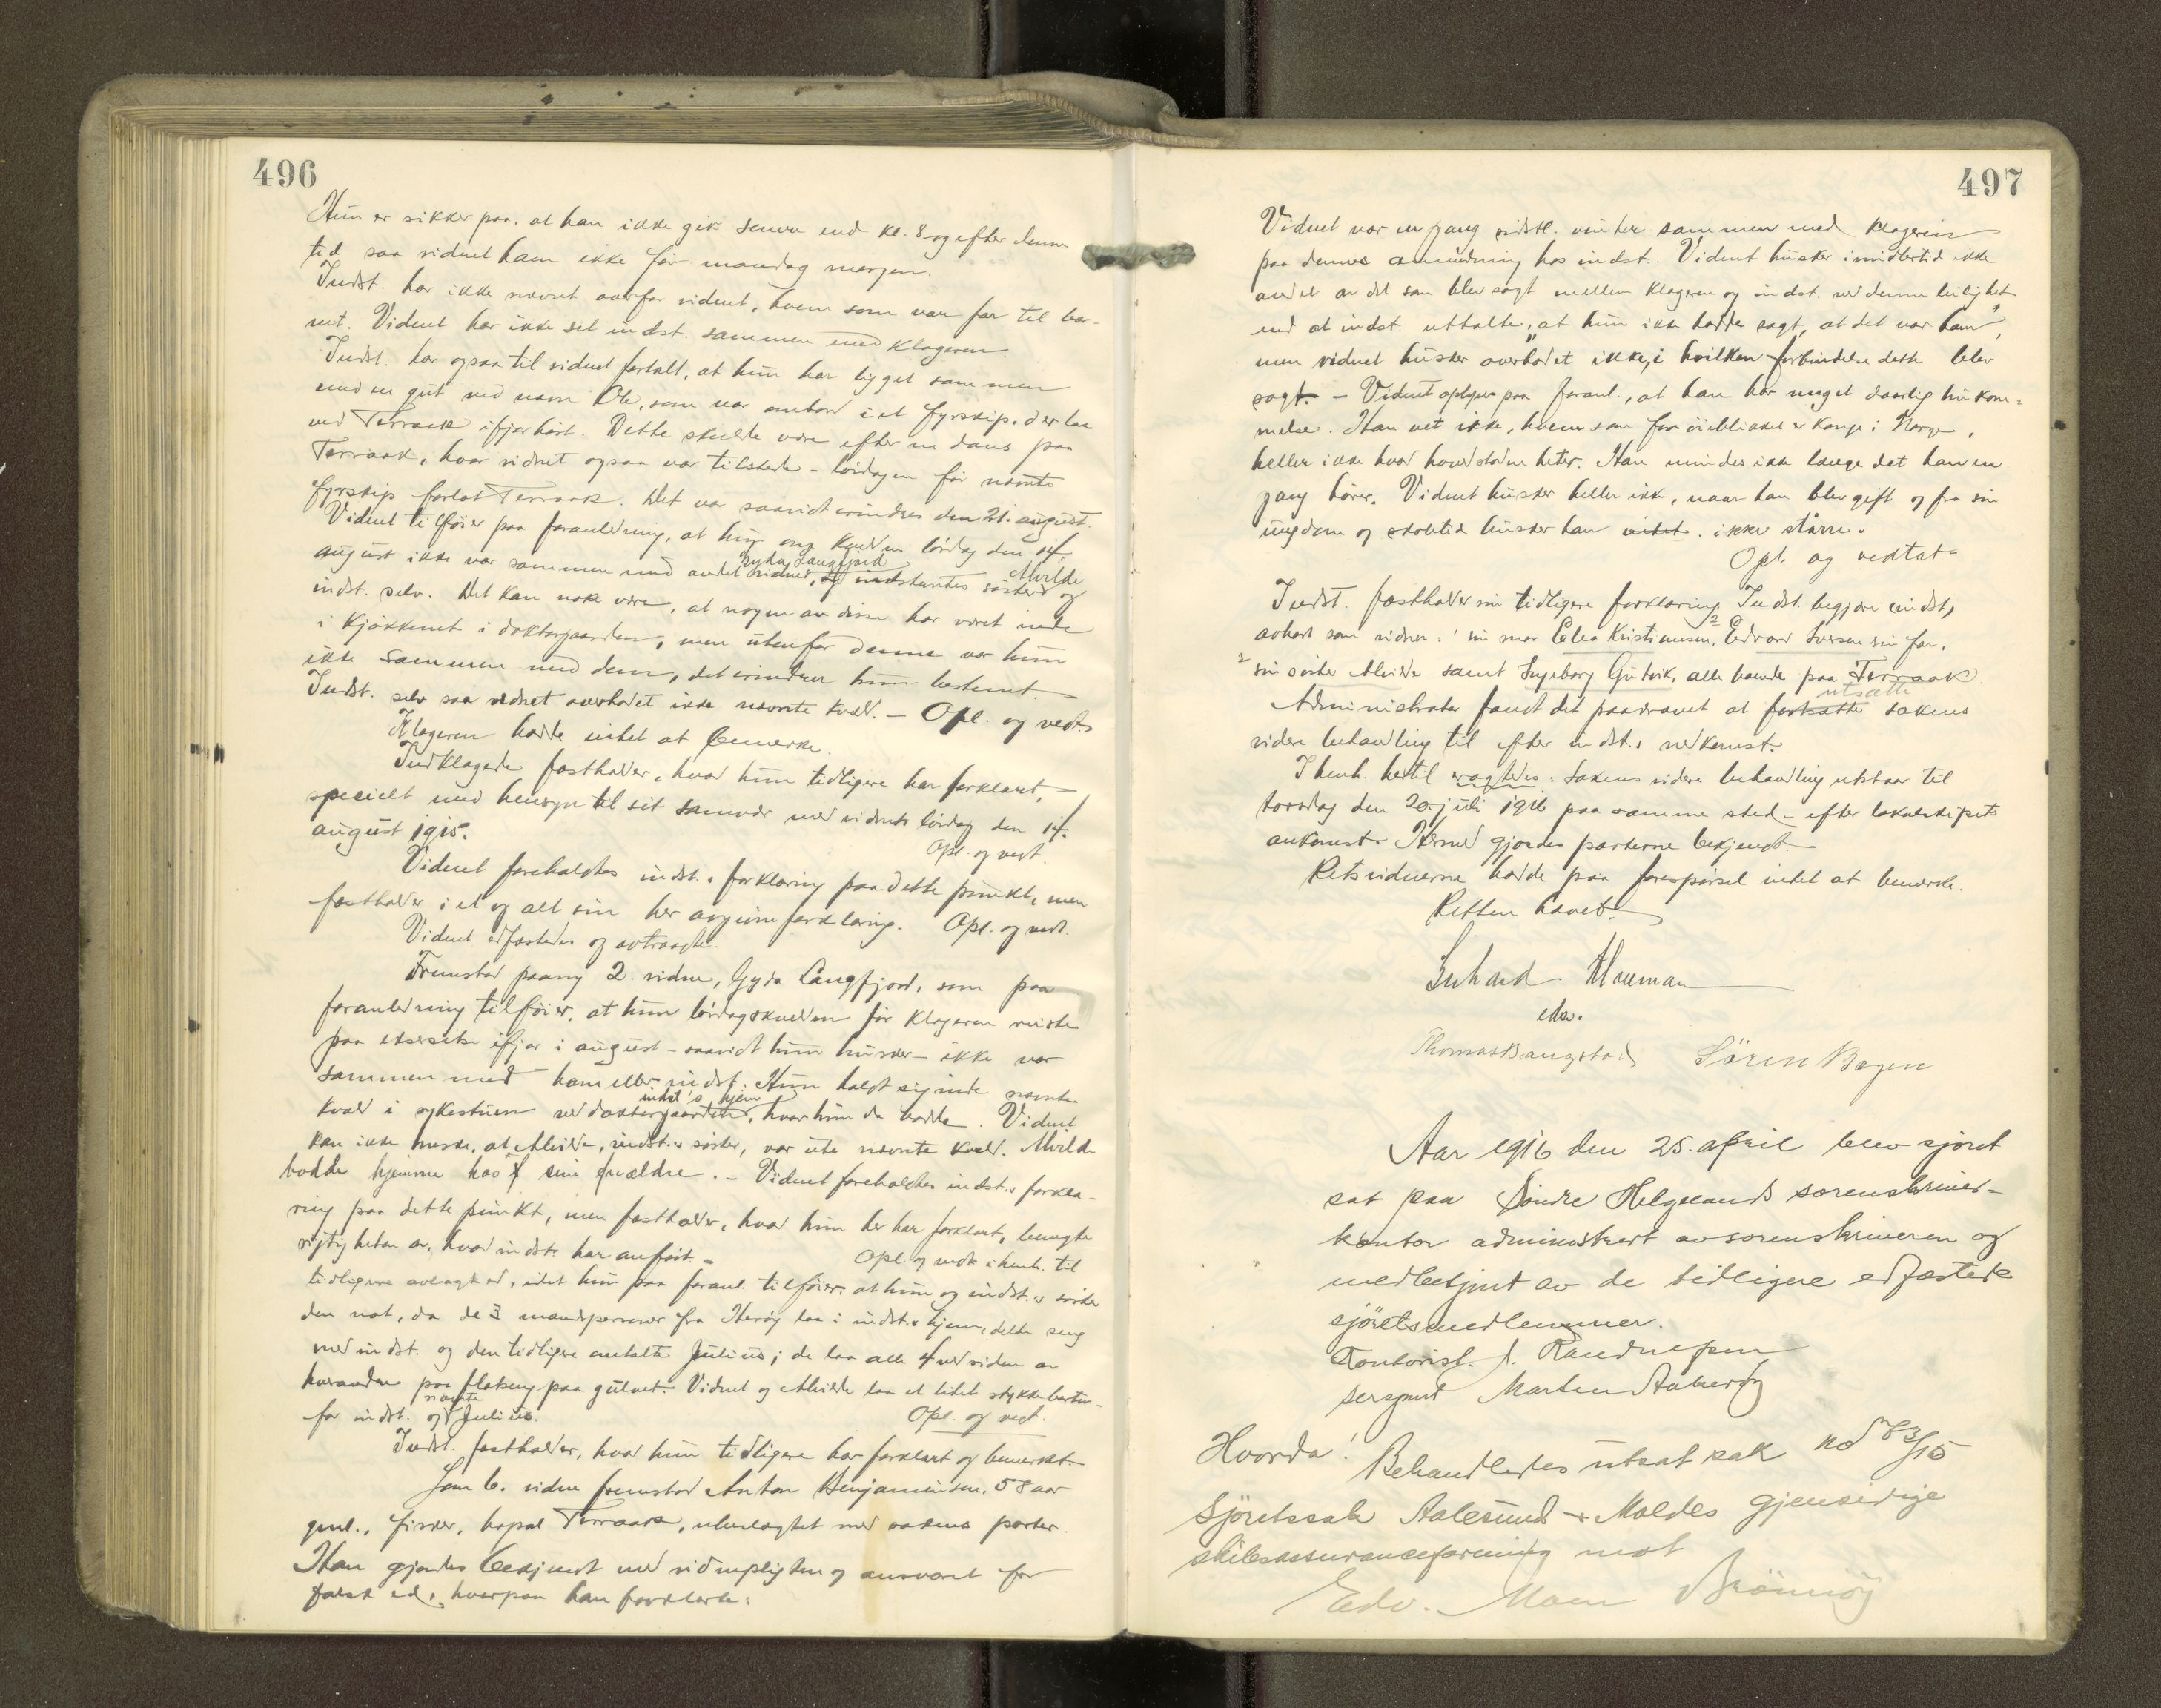 496
Hun er sikker paa, at han ikke gik senere end kl. 8 og efter denne
tid saa vidnet ham ikke før mandag morgen.
Indst. har ikke nævnt overfor vidnet, hvem som var far til bar-
net. Vidnet har ikke set indst. sammen med klageren.
Indst. har ogsaa til vidnet fortalt, at hun har ligget sammen
med en gut ved navn Ole, som var ombord i et fyrskip, der laa
ved Terraak ifjor høst. Dette skulde være efter en dans paa
Terraak, hvor vidnet ogsaa var tilstede - lørdagen før nævnte
fyrskip forlot Terraak. Det var saavidt erindres den 21. august.
Vidnet tilføier paa foranledning, at hun kvelden lørdag den 14.
august ikke var sammen med andet vidne, Gyda Langfjord, indstevntes søster Alvilde og
indst. selv. Det kan nok være, at nogen av disse har været inde
i kjøkkenet i doktorgaarden, men utenfor denne var hun
ikke sammen med dem, det erindrer hun bestemt.
Indst. selv saa vidnet overhodet ikke nævnte kveld. - Opl. og vedt.
Klageren hadde intet at bemerke.
Indklagede fastholder, hvad hun tidligere har forklaret,
specielt med hensyn til sit samvær med vidnet lørdag den 14.
august 1915.
Opl. og vedt.
Vidnet foreholdtes indst.s forklaring paa dette punkt, men
fastholder i et og alt sin her avgivne forklaring. Opl. og vedt.
Vidnet edfæstedes og avtraadte.
Fremstod paany 2. vidne, Gyda Langfjord, som paa
foranledning tilføier, at hun lørdagskvelden før klageren reiste
paa ekserсis ifjor i august - saavidt hun husker - ikke var
sammen med ham eller indst. Hun holdt sig inde nævnte
kveld i sykestuen ved doktorgaarden, indst's hjem, hvor hun da bodde. Vidnet
kan ikke huske, at Alvilde, indst.s søster, var ute nævnte kveld. Alvilde
bodde hjemme hos sine forældre. - Vidnet foreholdtes indst.s forkla-
ring paa dette punkt, men fastholder, hvad hun her har forklart, benegter
rigtigheten av, hvad indst. har anført. -
Opl. og vedt. i henh. til
tidligere avlagt ed, idet hun paa foranl. tilføier, at hun og indst.s søster
den nat, da de 3 mandspersoner fra Herøy laa i indst.s hjem, delte seng
med indst. og den tidligere omtalte Julius; de laa alle 4 ved siden av
hverandre paa flatseng paa gulvet. Vidnet og Alvilde laa et litet stykke borten-
for indst. og nævnte Julius.
Opl. og vedt.
Indst. fastholder, hvad hun tidligere har forklart og bemerket.
Som 6. vidne fremstod Anton Benjaminsen, 58 aar
gml., fisker, bopæl Terraak, ubeslægtet med sakens parter.
Han gjordes bekjendt med vidnepligten og ansvaret for
falsk ed, hvorpaa han forklarte:
497
Vidnet var en gang sidstl. vinter sammen med klageren
paa dennes anmodning hos indst. Vidnet husker imidlertid ikke
andet av det som blev sagt mellem klageren og indst. ved denne leilighet
end at indst. uttalte, "at hun ikke hadde sagt, at det var ham",
men vidnet husker overhodet ikke, i hvilken forbindelse dette blev
sagt. - Vidnet oplyser paa foranl., at han har meget daarlig hukom-
melse. Han vet ikke, hvem som for øieblikket er konge i Norge,
heller ikke hvad hovedstaden heter. Han mindes ikke længe det han en
gang hører. Vidnet husker heller ikke, naar han blev gift og fra sin
ungdom og skoletid husker han intet. ikke større.
Opl. og vedtat
Indst. fastholder sin tidligere forklaring. Indst. begjærer
avhørt som vidner: sin mor Elea Kristiansen, Edvard Iversen sin far,
sin søster Alvilde samt Ingeborg Gutvik, alle boende paa Terraak.
Administrator fandt det paakrævet at fortsætte utsætte sakens
videre behandling til efter indst.s nedkomst.
I henh. hertil eragtedes: Sakens videre behandling utstaar til
torsdag den 20. juli 1916 paa samme sted - efter lokalskipets
ankomst. Hermed gjordes parterne bekjendt.
Retsvidnerne hadde paa forespørsel intet at bemerke.
Retten hævet.
edsv.
Thomas Bangstad Søren Bogen
Aar 1916 den 25. april blev sjøret
sat paa Søndre Helgelands sorenskriver-
kontor administrert av sorenskriveren og
medbetjent av de tidligere edfæstede
sjøretsmedlemmer.
Kontorist
sersjant
Hvorda:
Behandledes utsat sak no 83/15
Sjøretssak Aalesund & Moldes gjensidige
skibsassuranceforening mot
Edv. Moen Brønnøy